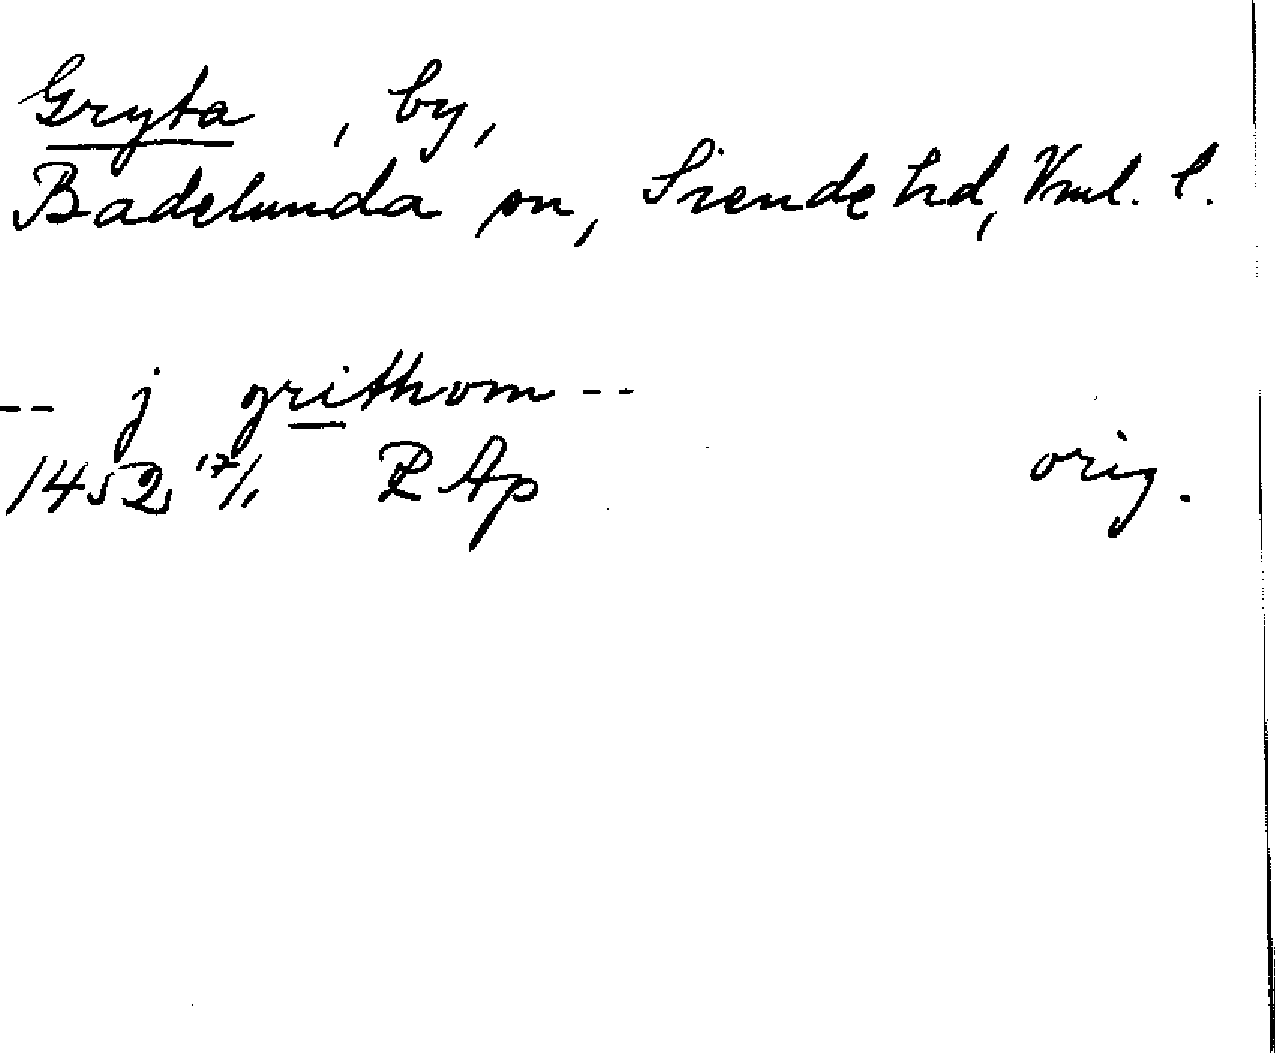 Gryta, by,
Badelunda sn, Siende hd, Vml. l.
-- j grithom --
1452 17/1 RAp orig.